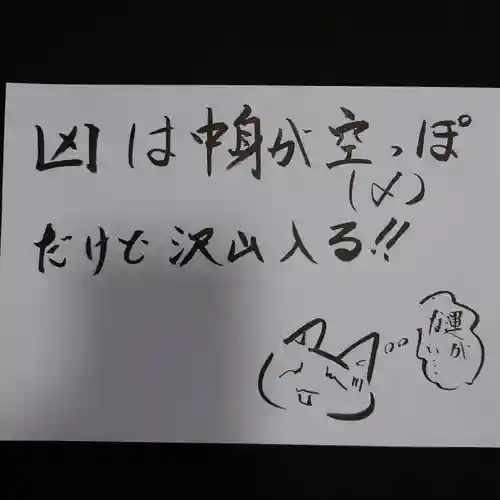 凶は中身が空っぽ
(〆)
だけど沢山入る!!
運が
ない…